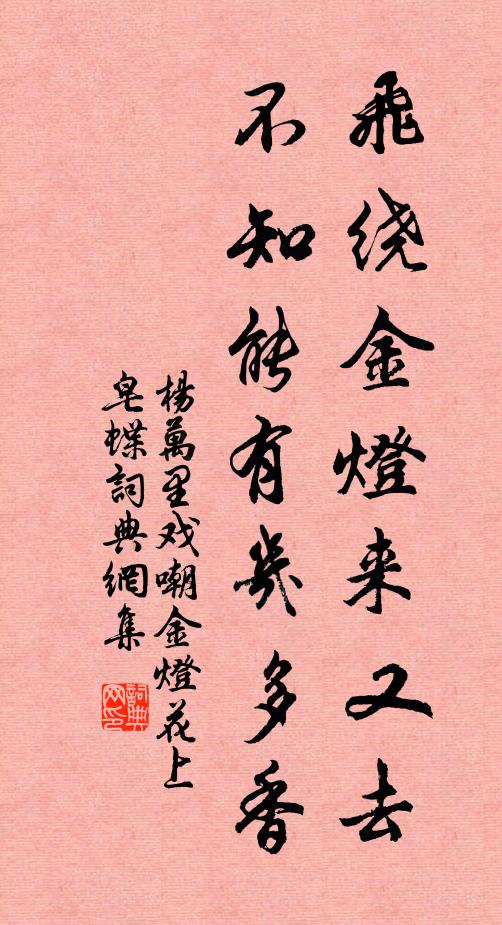 飛绕金燈来又去
不知能有幾多香
楊萬里戏嘲金燈花上
皂蝶詞典網集
詞典
网印